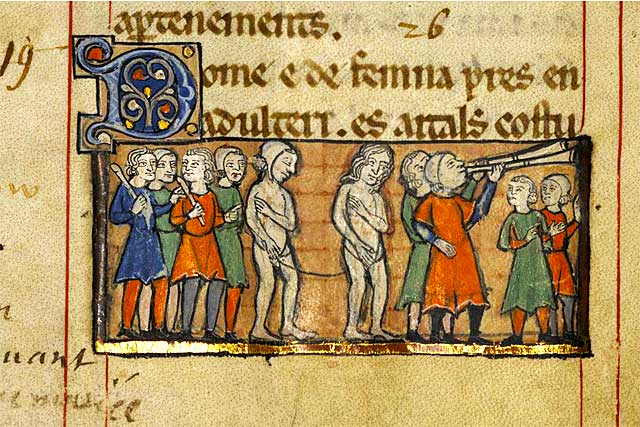 aptenements. 26
19
Dome e de femna pres en
adulteri. es aitals costu
uant